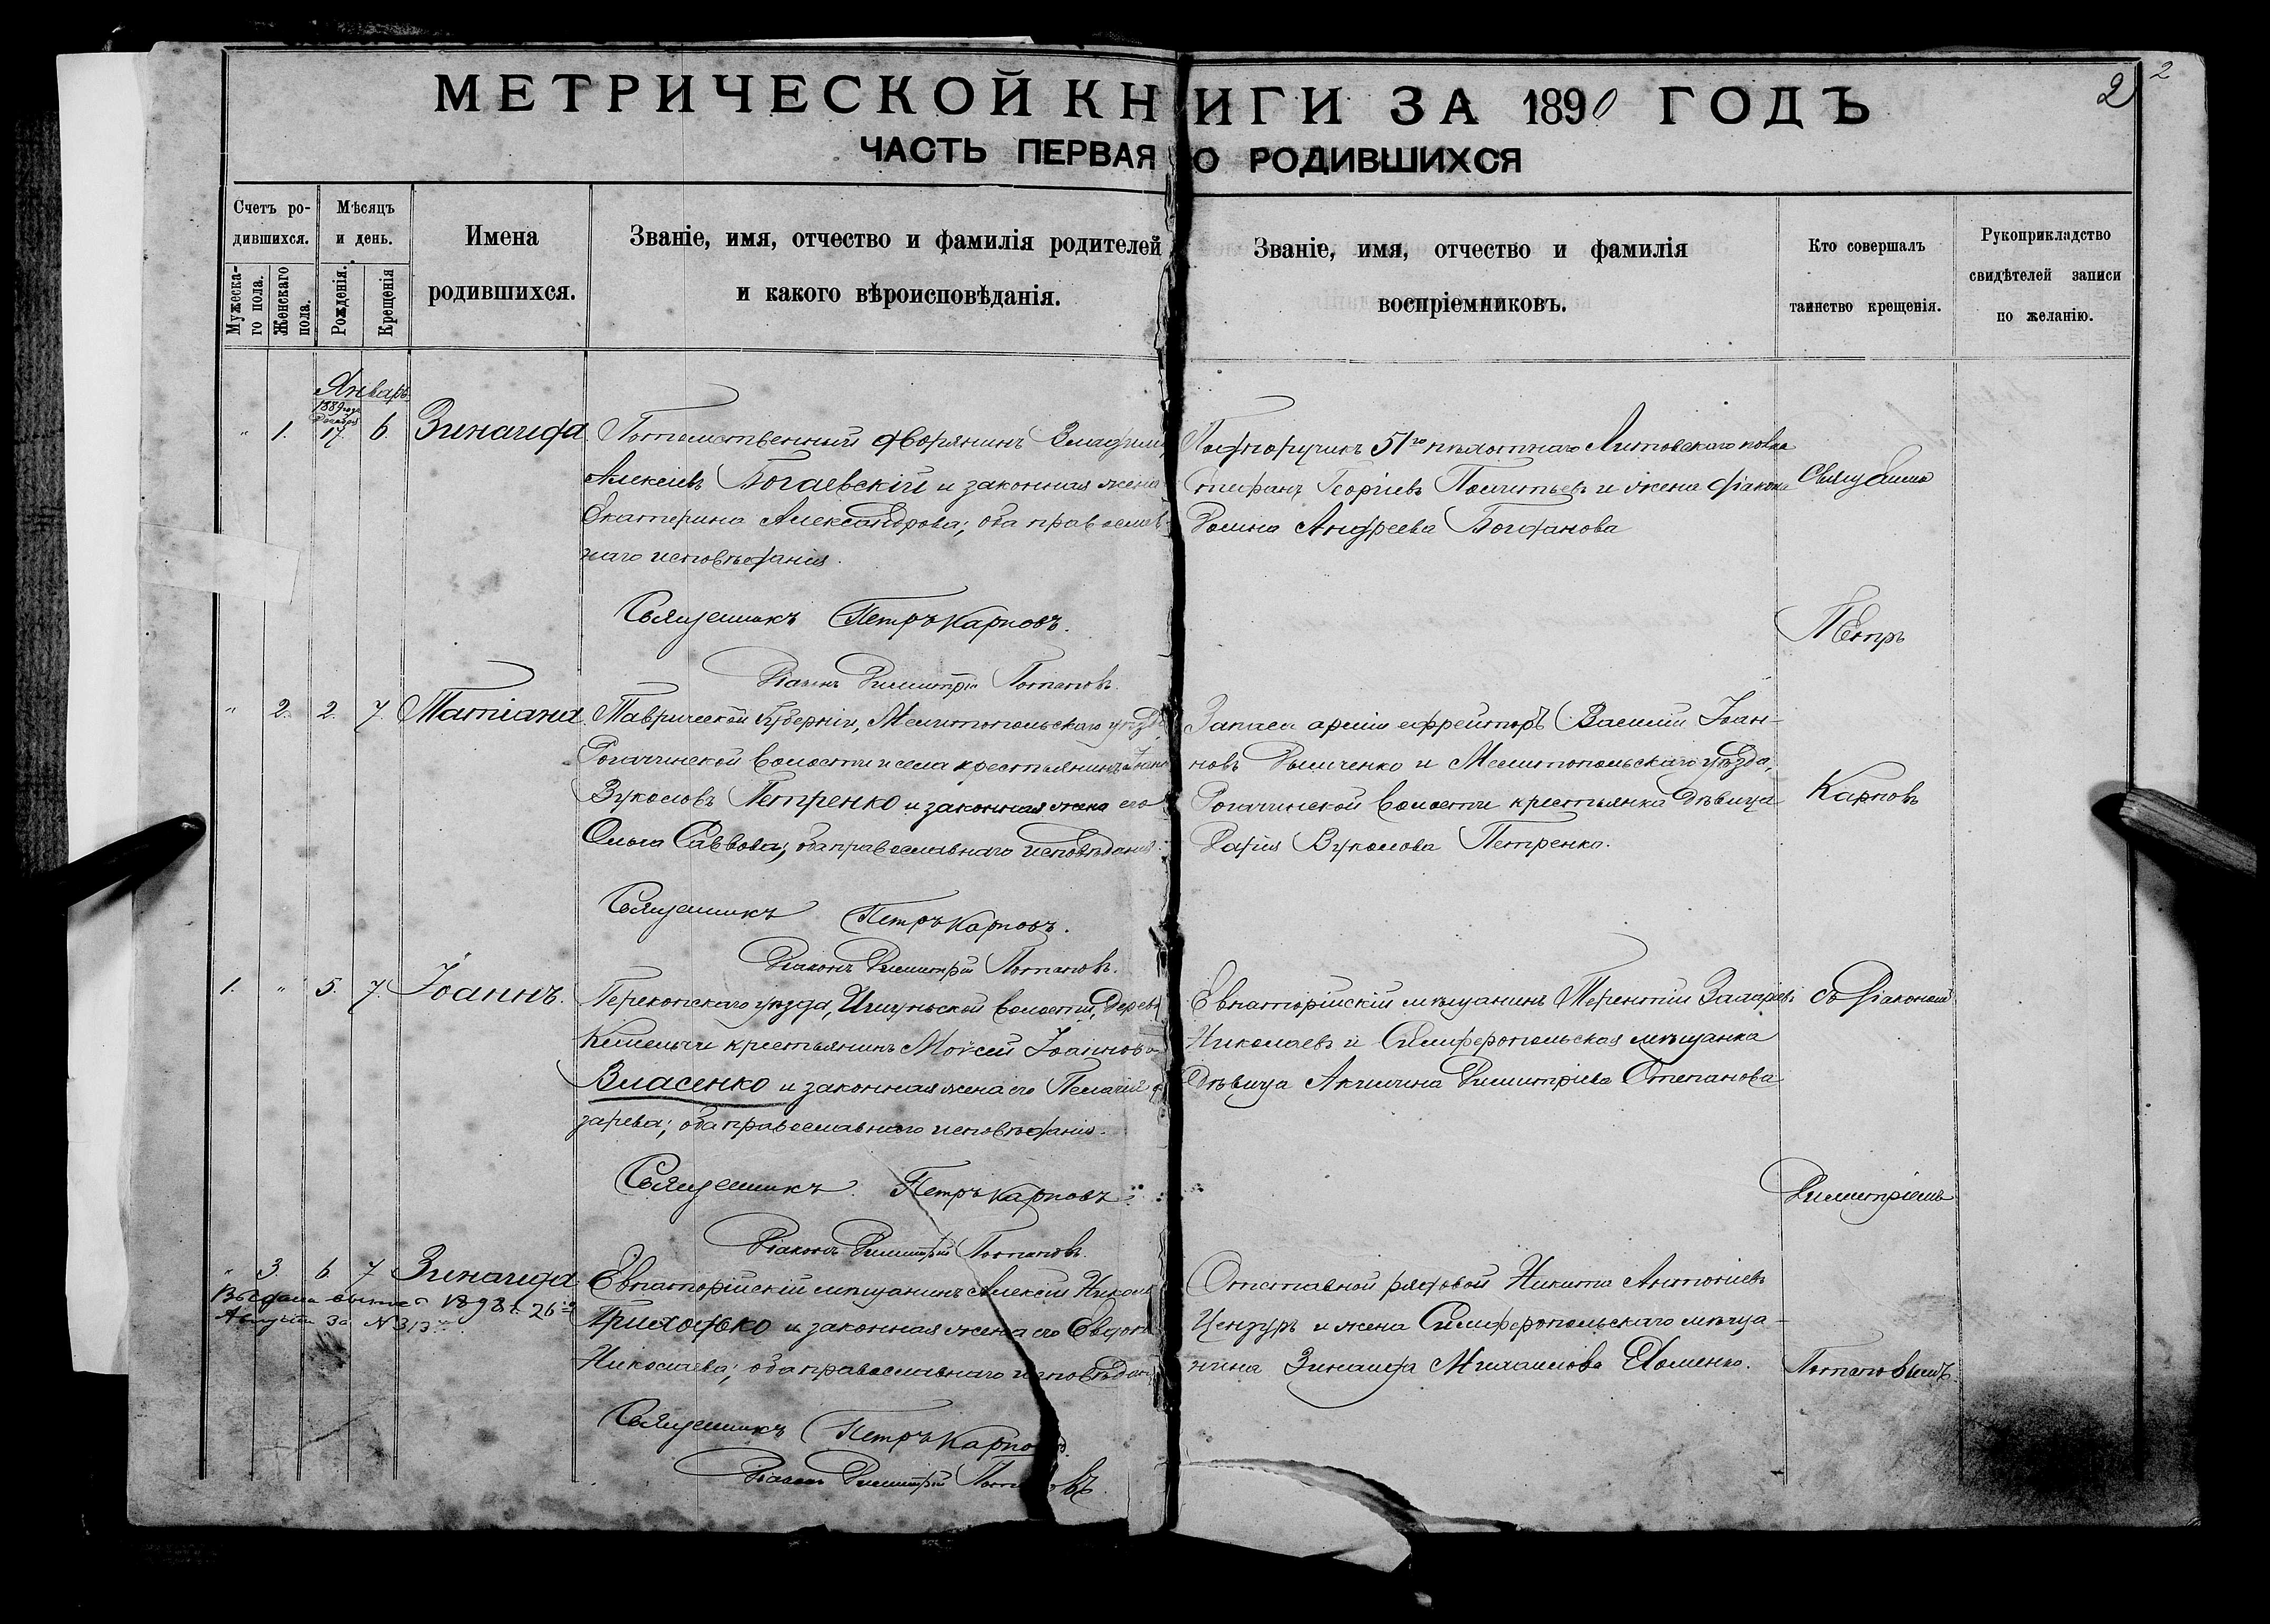 МЕТРИЧЕСКОЙ КНИГИ ЗА 1890 ГОДЪ
2
2
ЧАСТЬ ПЕРВАЯ О РОДИВШИХСЯ
Счетъ ро-
дившихся.
Мужеска-
го пола.
Женскаго
пола.
Мѣсяцъ
и день.
Рожденія.
Крещенія
Имена
родившихся.
Званіе, имя, отчество и фамилія родителей
и какого вѣроисповѣданія.
Званіе, имя, отчество и фамилія
воспріемниковъ.
Кто совершалъ
таинство крещенія.
Рукоприкладство
свидѣтелей записи
по желанію.
Январь
1889 года
Декабря
" 1. 17. 6. Зинаида
Потомственный дворянинъ Владимиръ
Алексіевъ Богаевскій и законная жена
Екатерина Александрова; оба православ-
наго исповѣданія.
Священникъ Петръ Карповъ.
Діаконъ Димитрій Потаповъ.
Подпоручикъ 51го пѣхотнаго Литовскаго полка
Стефанъ Георгіевъ и жена діакона
Андреева Богданова
Священникъ
Петръ
Карповъ
съ діакономъ
Димитріемъ
Потаповымъ.
" 2. 2. 7. Татіана
Таврической Губерніи, Мелитопольскаго уѣзда
Рогачинской волости и села крестьянинъ
Вуколовъ Петренко и законная жена его
Ольга Саввова; оба православнаго исповѣданія.
Священникъ Петръ Карповъ.
Діаконъ Димитрій Потаповъ.
Запаса арміи ефрейторъ Василій Іоан-
новъ и Мелитопольскаго уѣзда,
Рогачинской волости крестьянка дѣвица
Дарія Вуколова Петренко.
1. " 5. 7. Іоаннъ.
Перекопскаго уѣзда, Ишуньской волости, дерев
крестьянинъ Моисей Іоанновъ
Власенко и законная жена его Пелагія
зарева; оба православнаго исповѣданія.
Священникъ Петръ Карповъ
Діаконъ Димитрій Потаповъ.
Евпаторійскій мѣщанинъ Терентій
Николаевъ и Симферопольская мѣщанка
дѣвица Акилина Димитріева Степанова
" 3. 6. 7 Зинаида
1898 г. 26го
Августа за №313
Евпаторійскій мѣщанинъ Алексій Никола
Приходько и законная жена его Евдок
Николаева; оба православнаго исповѣдан
Священникъ Петръ Карповъ.
Діаконъ Димитрій Потаповъ.
Отставной рядовой Никита Антоніевъ
Цензуръ и жена Симферопольскаго мѣща-
нина Зинаида Михаилова